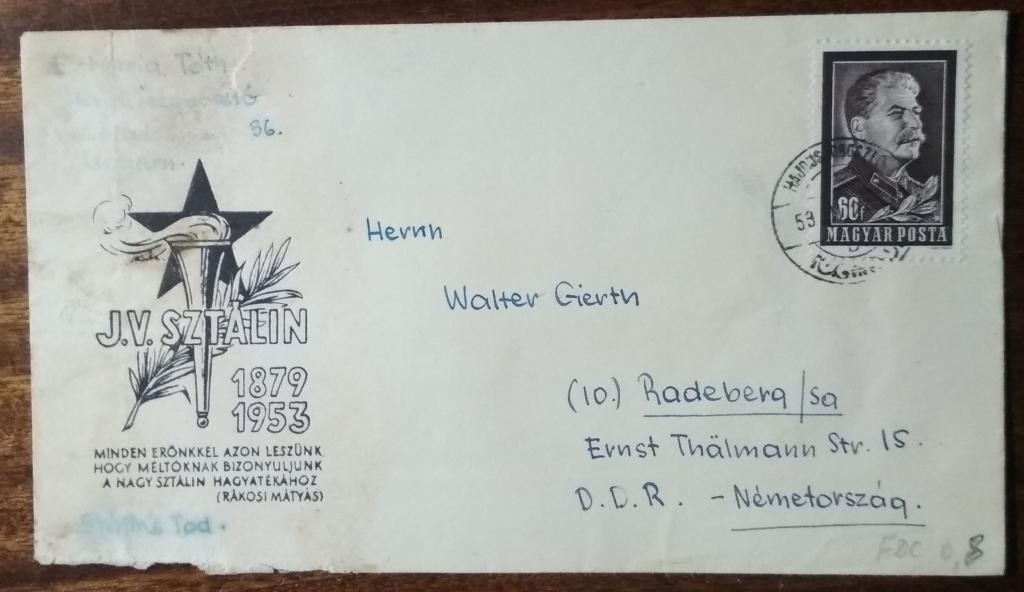 Tóth
36.
Ungarn.
J.V. SZTÁLIN
1879
1953
MINDEN ERŐNKKEL AZON LESZÜNK,
HOGY MÉLTÓKNAK BIZONYULJUNK
A NAGY SZTÁLIN HAGYATÉKÁHOZ
(RÁKOSI MÁTYÁS)
Stalin's Tod.
60f
MAGYAR POSTA
53
Herrn
Walter Gierth
(10.) Radeberg/Sa
Ernst Thälmann Str. 15.
D.D.R. - Németország.
FDC 0,8